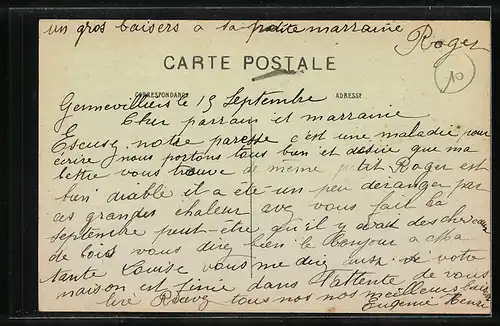 un gros baisers a sa petite marraine
Roger
CARTE POSTALE
10
CORRESPONDANCE
ADRESSE
Gennevilliers le 15 Septembre
Cher parrain et marraine
Escuse notre paresse c'est une maladie pour
écrire nous portons tous bien et désire que ma
lettre vous trouve de même petit Roger est
bien diable il a été un peu déranger par
ces grandes chaleur avez vous fait la
septembre peut-être qu'il y avait des chevaux
de bois vous direz bien le bonjour a ma
tante Louise vous me direz aussi si votre
maison est finie dans l'attente de vous
lire Recevez tous nos meilleurs baisers
Eugénie Henri